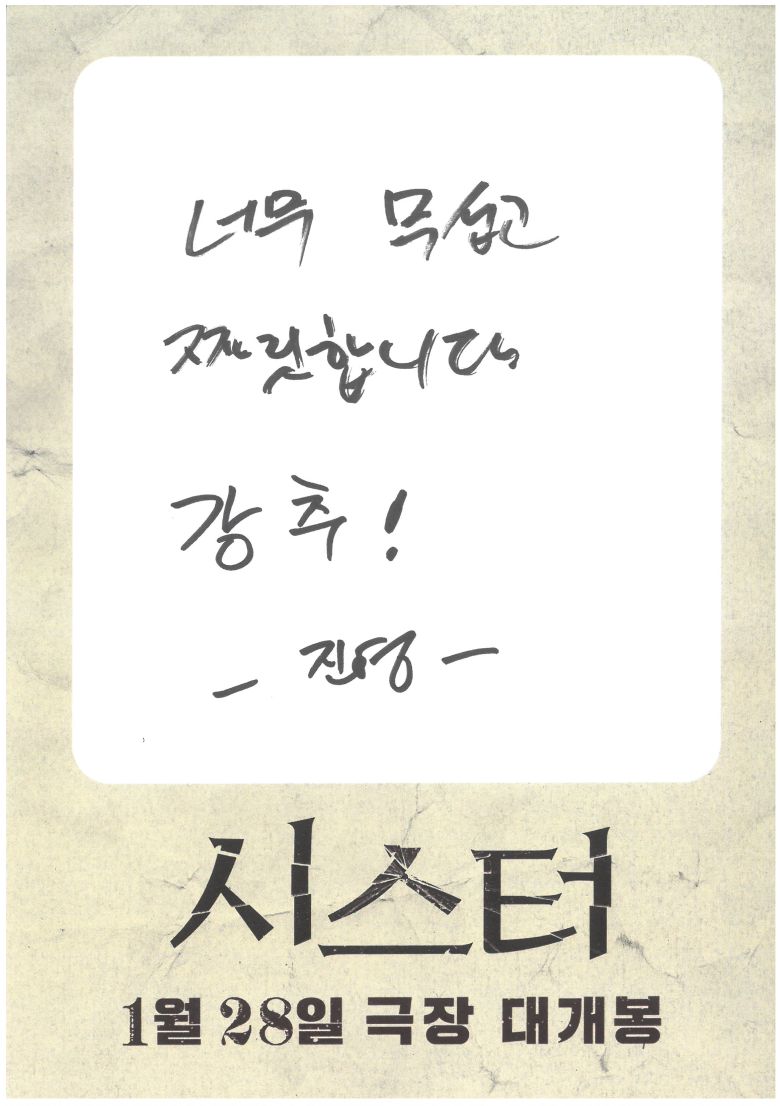 너무 무섭고
짜릿합니다
강추!
- 진영 -
시스터
1월 28일 극장 대개봉